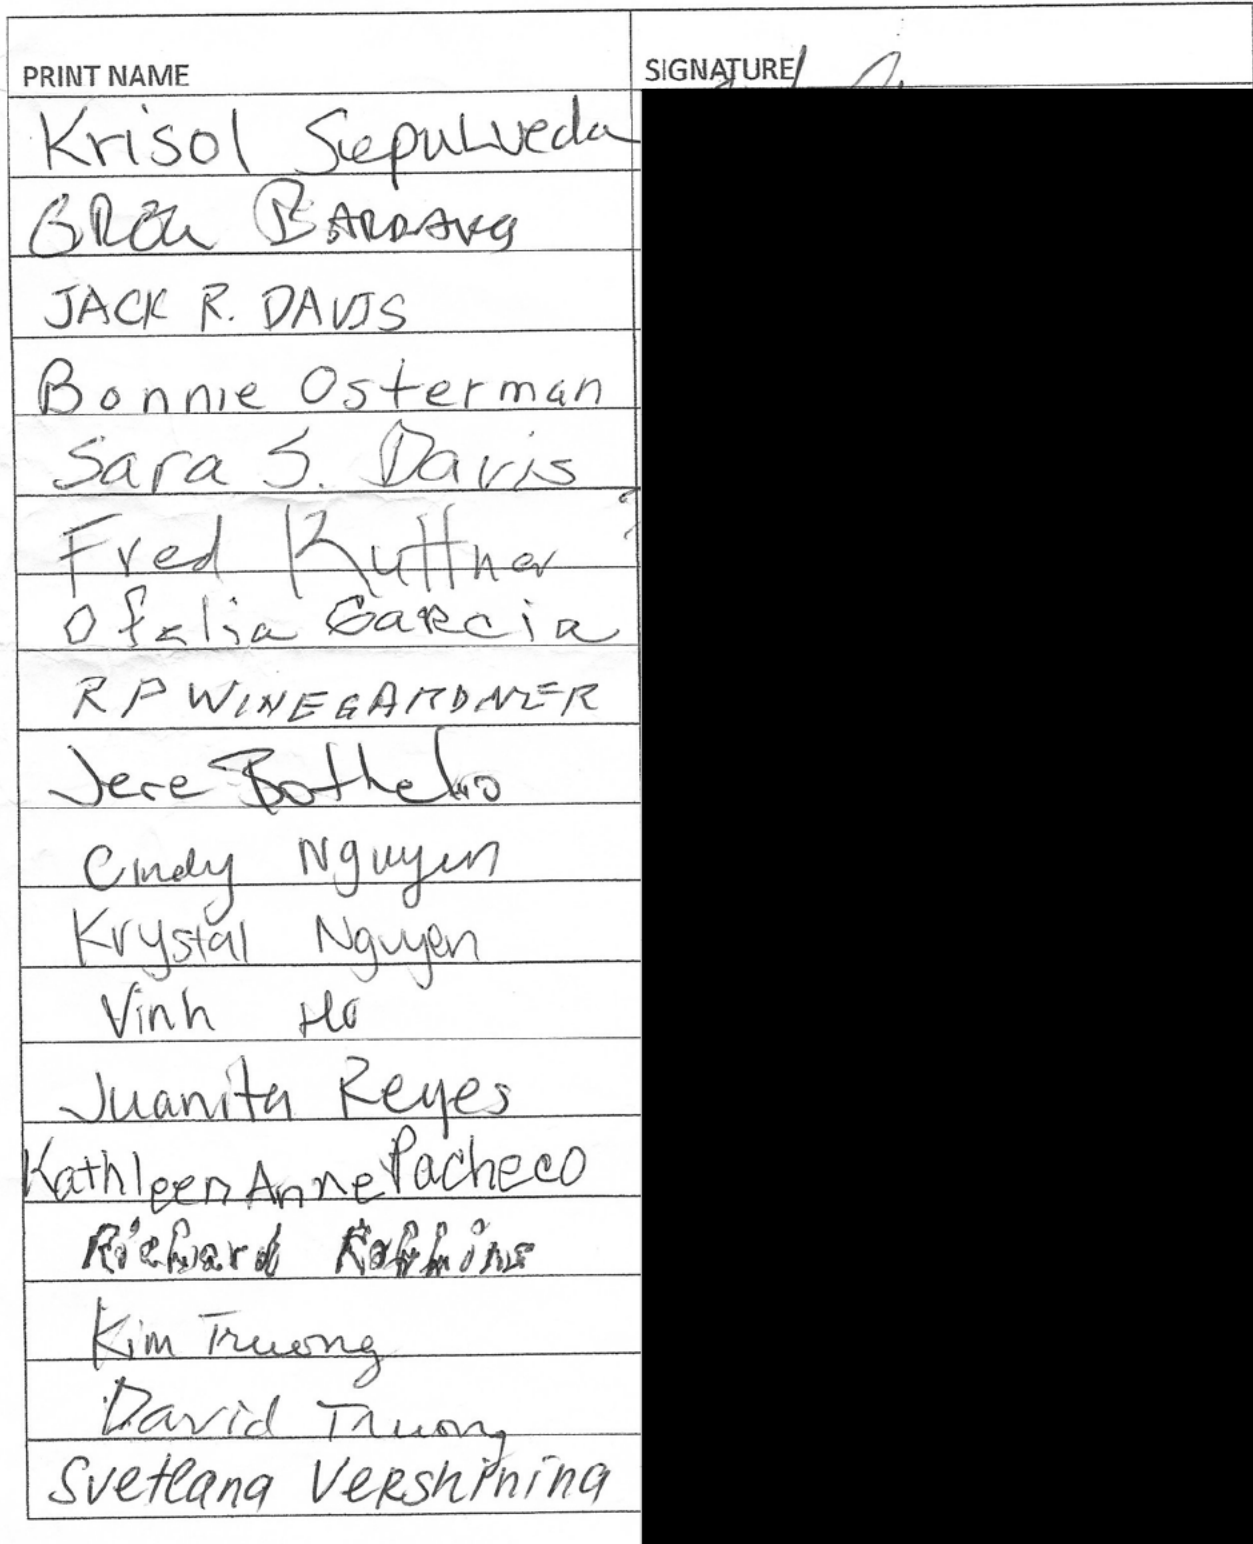 PRINT NAME SIGNATURE
Krisol Sepulveda
JACK R. DAVIS
Bonnie Osterman
Sara S. Davis
Fred Kuttner
Ofelia Garcia
R P WINEGARDNER
Jere Bothelo
Cindy Nguyen
Krystal Nguyen
Vinh Ho
Juanita Reyes
Kathleen Anne Pacheco
Richard Robbins
Kim Truong
David Truong
Svetlana Vershinina